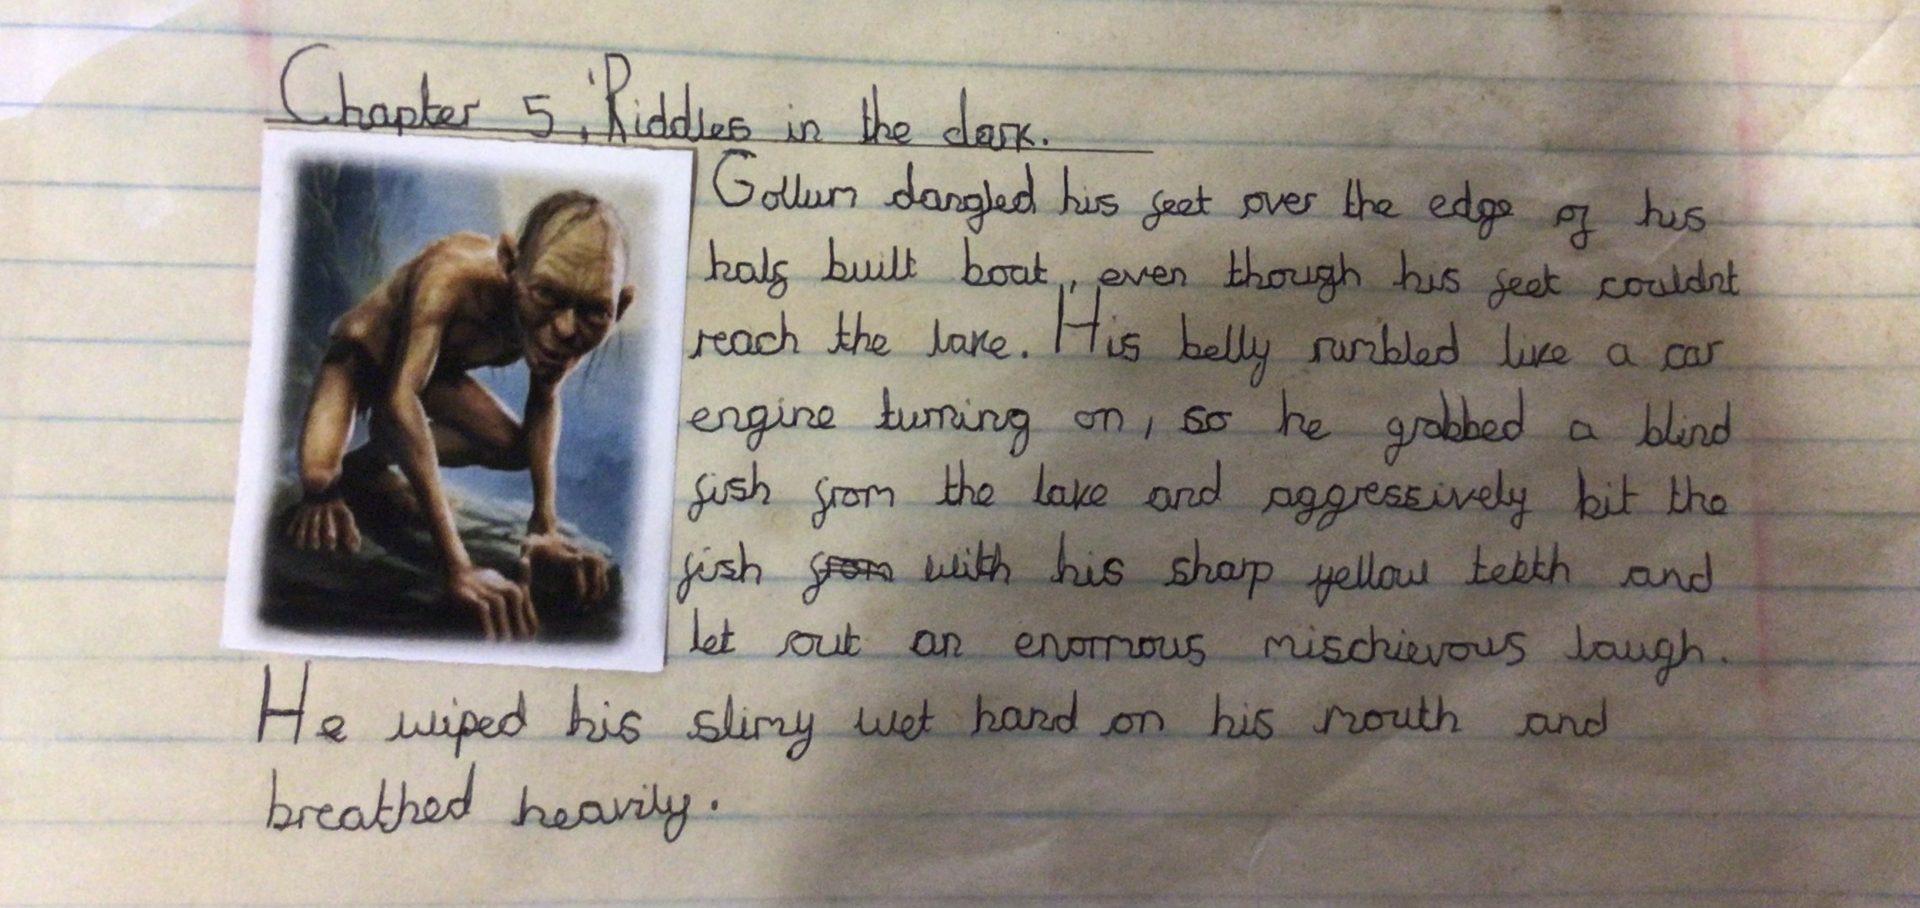 Chapter 5, 'Riddles in the dark.
Gollum dangled his feet over the edge of his
half built boat, even though his feet couldnt
reach the lake. His belly rumbled like a car
engine turning on, so he grabbed a blind
fish from the lake and aggressively bit the
fish from with his sharp yellow teeth and
let out an enormous mischievous laugh.
He wiped his slimy wet hand on his mouth and
breathed heavily.